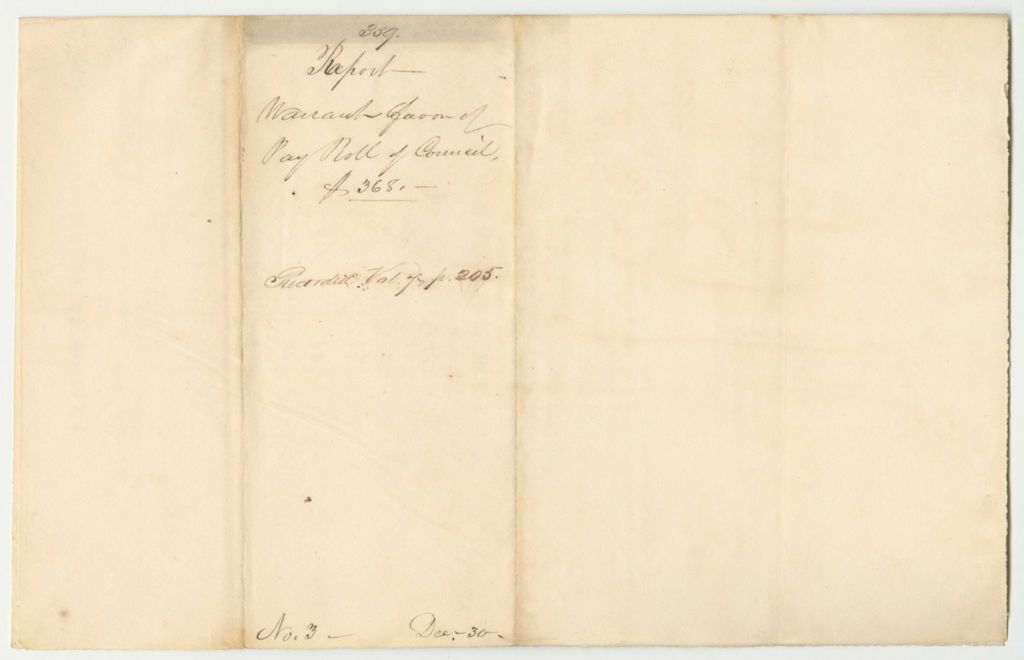 359.
Report
Warrant favor of
Pay Roll of Council,
$ 368. —
Recorded Vol. 7, p. 205.
No. 3 — Dec. 30.